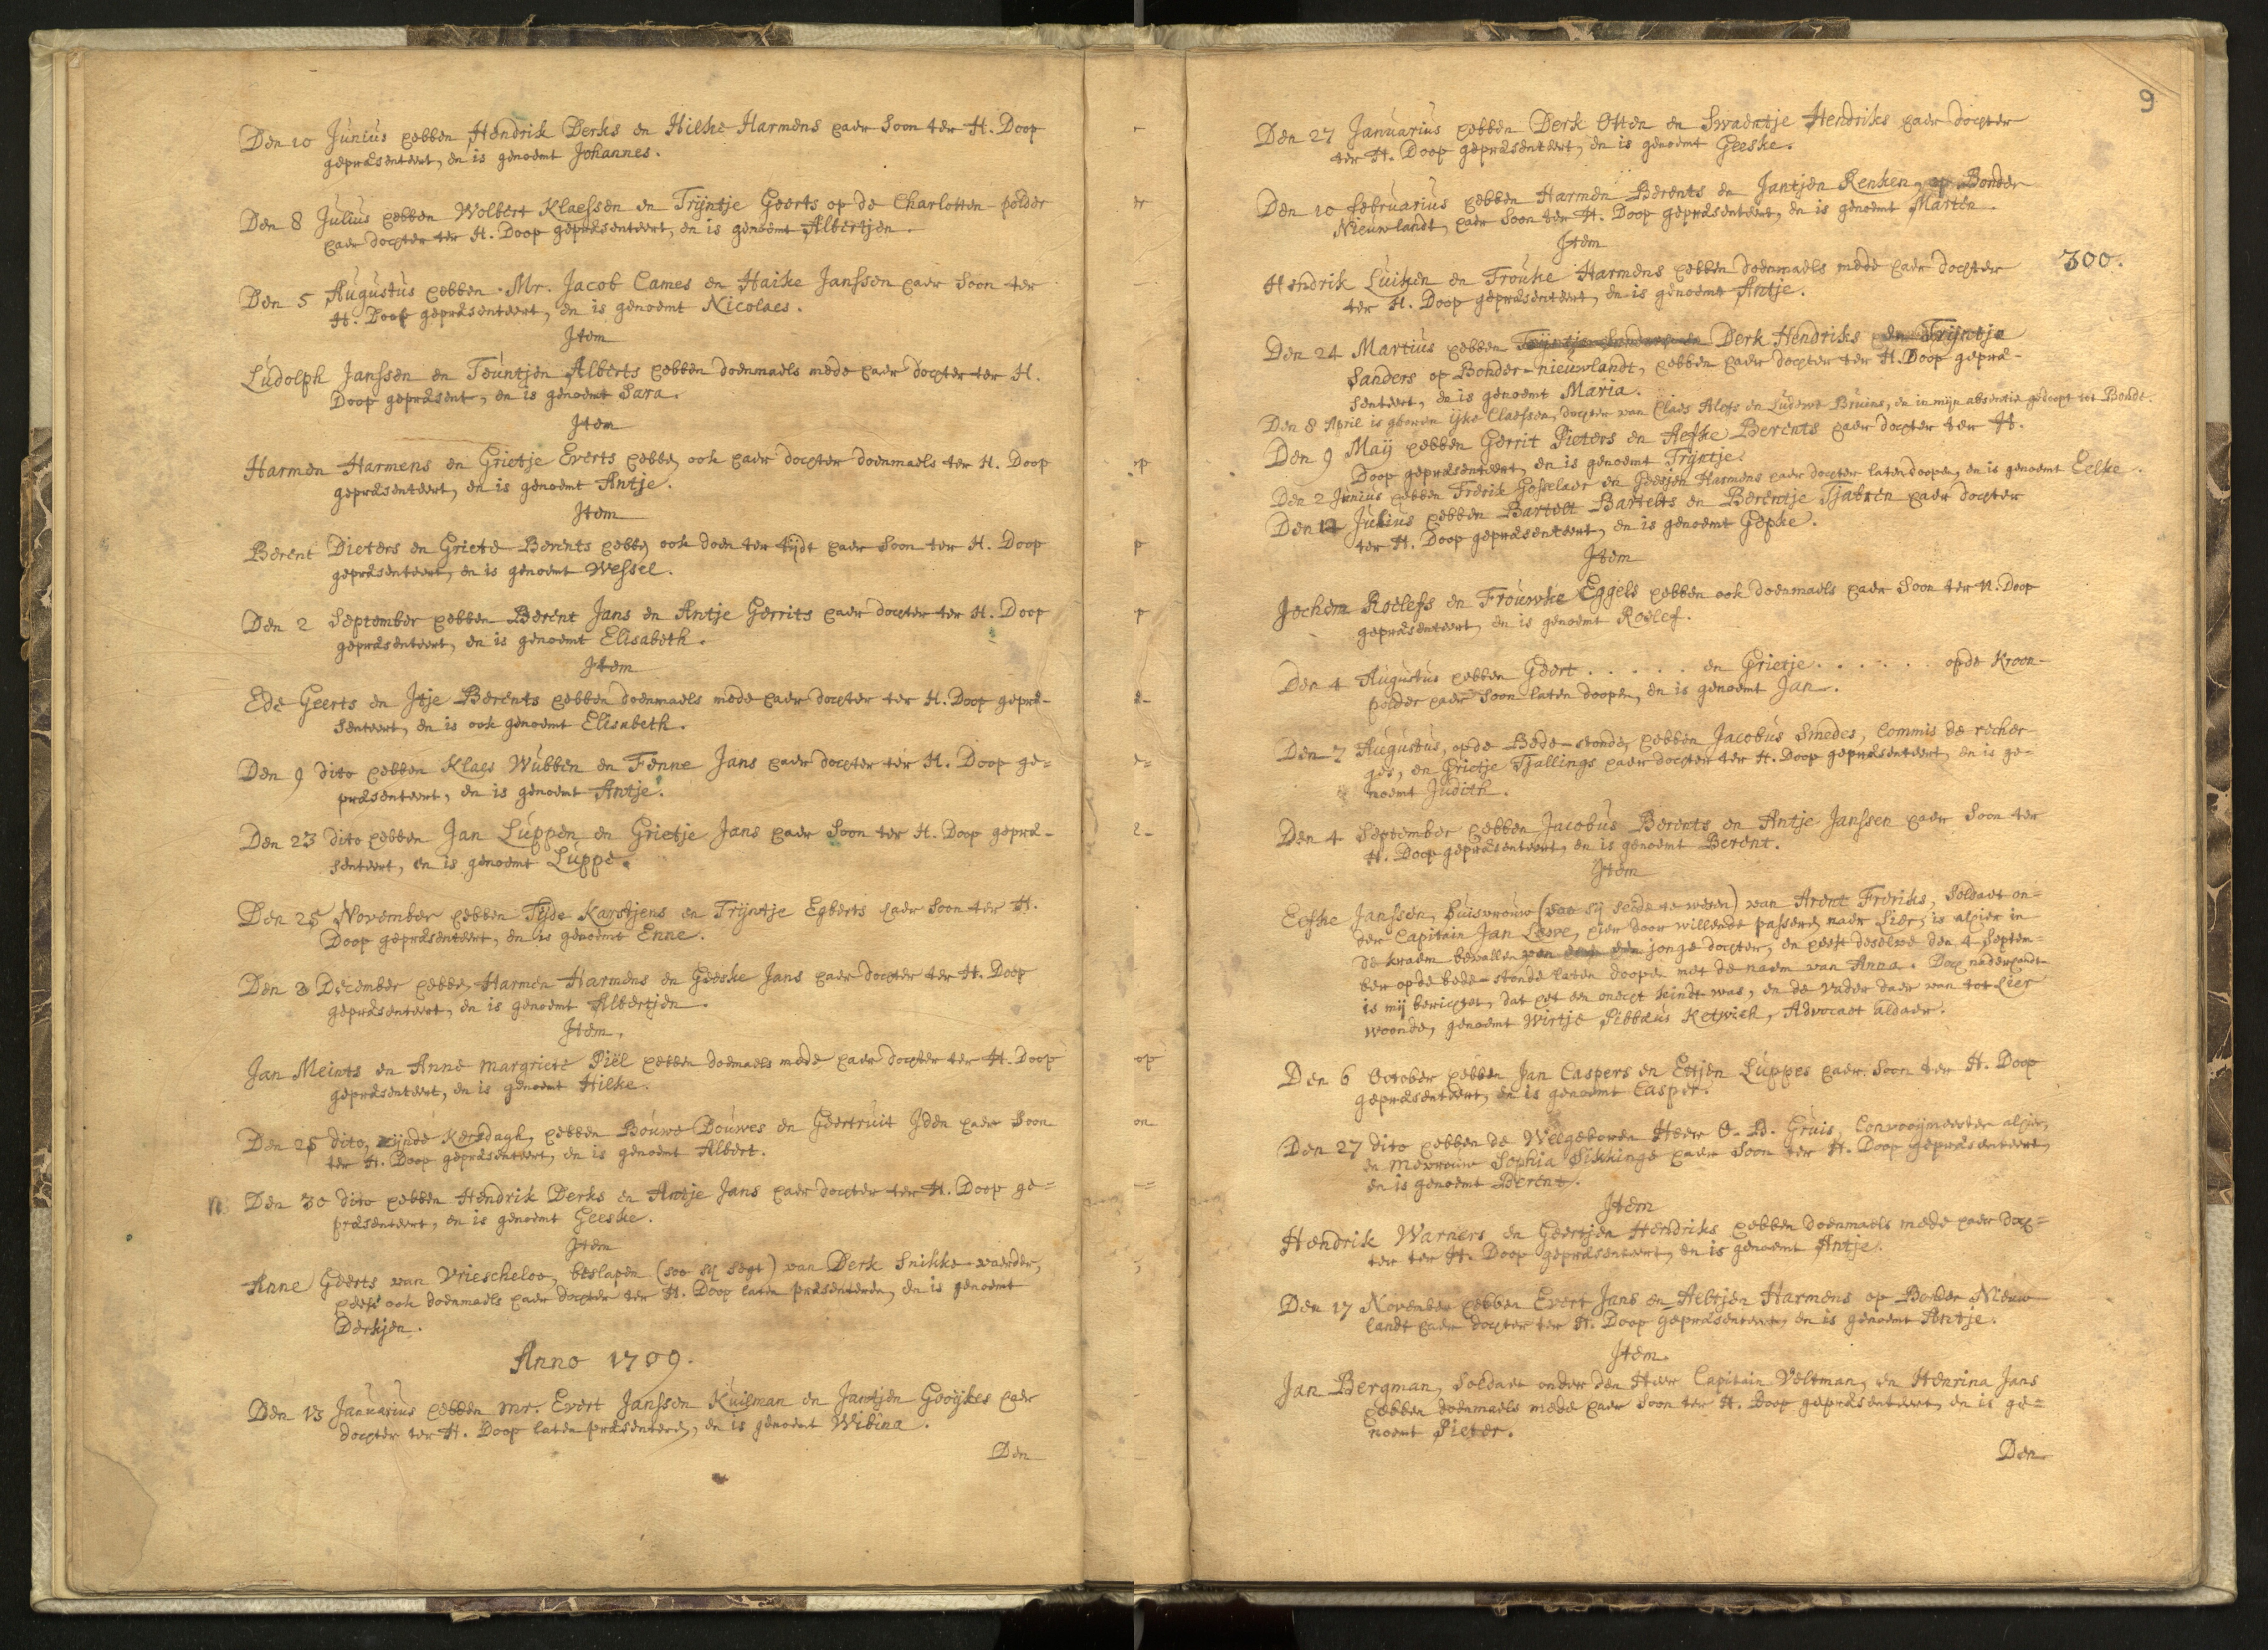 Den 10 Junius hebben Hendrik Derks en Hilke Harmens haer soon ter H. Doop
gepræsenteert, en is genoemt Johannes.
Den 8 Julius hebben Wolbert Klaessen en Trijntje Geerts op de Charlotten-polder
haer dochter ter H. Doop gepræsenteert, en is genoemt Albertjen.
Den 5 Augustus hebben Mr. Jacob Cames en Haike Janssen haer soon ter
H. Doop gepræsenteert, en is genoemt Nicolaes.
Item
Ludolph Janssen en Teuntjen Alberts hebben doenmaels mede haer dochter ter H.
Doop gepræsent, en is genoemt Sara.
Item
Harmen Harmens en Grietje Everts hebben ook haer dochter doenmaels ter H. Doop
gepræsenteert, en is genoemt Antje.
Item
Berent Pieters en Griete Berents hebben ook doen ter tijdt haer soon ter H. Doop
gepræsenteert, en is genoemt Wessel.
Den 2 September hebben Berent Jans en Antje Gerrits haer dochter ter H. Doop
gepræsenteert, en is genoemt Elisabeth.
Item
Ede Geerts en Itje Berents hebben doenmaels mede haer dochter ter H. Doop gepræ-
senteert, en is ook genoemt Elisabeth.
Den 9 dito hebben Klaes Wubben en Fenne Jans haer dochter ter H. Doop ge=
præsenteert, en is genoemt Antje.
Den 23 dito hebben Jan Luppen en Grietje Jans haer soon ter H. Doop gepræ-
senteert, en is genoemt Luppe.
Den 25 November hebben Tijde Karstjens en Trijntje Egberts haer soon ter H.
Doop gepræsenteert, en is genoemt Enne.
Den 2 December hebben Harmen Harmens en Geeske Jans haer dochter ter H. Doop
gepræsenteert, en is genoemt Albertjen.
Item.
Jan Meints en Anne Margriete Piel hebben doenmaels mede haer dochter ter H. Doop
gepræsenteert, en is genoemt Hilke.
Den 25 dito, zijnde Kersdagh, hebben Bouwe Douwes en Geertruit Iden haer soon
ter H. Doop gepræsenteert, en is genoemt Albert.
Den 30 dito hebben Hendrik Derks en Antje Jans haer dochter ter H. Doop ge=
præsenteert, en is genoemt Geeske.
Item
Anne Geerts van Vriescheloo, beslapen (soo sij segt) van Derk Snikke-vaerder,
heeft ook doenmaels haer dochter ter H. Doop laten præsenteren, en is genoemt
Derkjen.
Anno 1709.
Den 13 Januarius hebben mr. Evert Janssen Kuilman en Jantjen Gooijkes haer
dochter ter H. Doop laten præsenteren, en is genoemt Wibina.
Den
9
Den 27 Januarius hebben Derk Otten en Swaentje Hendriks haer dochter
ter H. Doop gepræsenteert, en is genoemt Geeske.
Den 10 februarius hebben Harmen Berents en Jantjen Renken, op Bonder
Nieuwlandt, haer soon ter H. Doop gepræsenteert, en is genoemt Marten.
Item
Hendrik Luiken en Frouke Harmens hebben doenmaels mede haer dochter 300.
ter H. Doop gepræsenteert, en is genoemt Antje.
Den 24 Martius hebben Derk Hendriks en Trijntje
Sanders op Bonder-nieuwlandt, hebben haer dochter ter H. Doop gepræ-
senteert, en is genoemt Maria.
Den 8 April is geboren Ijke Claessen, dochter van Claes Alofs en Ludewe Bruins, en in mijn absentie gedoopt tot Bonde.
Den 9 Maij hebben Gerrit Pieters en Aefke Berents haer dochter ter H.
Doop gepræsenteert, en is genoemt Trijntje.
Den 2 Junius hebben Frerik Gosselaer en Geesjen Harmens haer dochter laten doopen, en is genoemt Eelke.
Den 14 Julius hebben Bartelt Bartelts en Berentje Tjabren haer dochter
ter H. Doop gepræsenteert, en is genoemt Gepke.
Item
Jochem Roelefs en Frouwke Eggels hebben ook doenmaels haer soon ter H. Doop
gepræsenteert, en is genoemt Roelef.
Den 4 Augustus hebben Geert . . . . . en Grietje . . . . . . op de Kroon-
polder haer soon laten doopen, en is genoemt Jan.
Den 7 Augustus, op de Bede-stonde, hebben Jacobus Smedes, Commis de recher-
ges, en Grietje Tjallings haer dochter ter H. Doop gepræsenteert, en is ge=
noemt Judith.
Den 4 September hebben Jacobus Berents en Antje Janssen haer soon ter
H. Doop gepræsenteert, en is genoemt Berent.
Item
Eefke Janssen, huisvrouw (soo sij seide te wesen) van Arent Freriks, soldaet on=
der Capitain Jan Lewe, hier door willende passeren naer Lier, is alhier in
de kraem bevallen jonge dochter, en heeft deselve den 4 Septem=
ber op de bede-stonde laten doopen met de naem van Anna. Doch naderhandt
is mij berichtet, dat het een onecht kindt was, en de vader daer van tot Leer
woonde, genoemt Wirtje Pibbæus Ketwich, Advocaet aldaer.
Den 6 October hebben Jan Caspers en Ettjen Luppes haer soon ter H. Doop
gepræsenteert, en is genoemt Casper.
Den 27 dito hebben de Welgeboren Heer O. B. Gruis, Convooijmeester alhier,
en mevrouw Sophia Sikkinge haer soon ter H. Doop gepræsenteert,
en is genoemt Berent.
Item
Hendrik Warners en Geertjen Hendriks hebben doenmaels mede haer doch=
ter ter H. Doop gepræsenteert, en is genoemt Antje.
Den 17 November hebben Evert Jans en Aeltjen Harmens op Bonder Nieuw
landt haer dochter ter H. Doop gepræsenteert, en is genoemt Antje.
Item.
Jan Bergman, soldaet onder den Heer Capitain Veltman, en Henrina Jans
hebben doenmaels mede haer soon ter H. Doop gepræsenteert, en is ge=
noemt Pieter.
Den